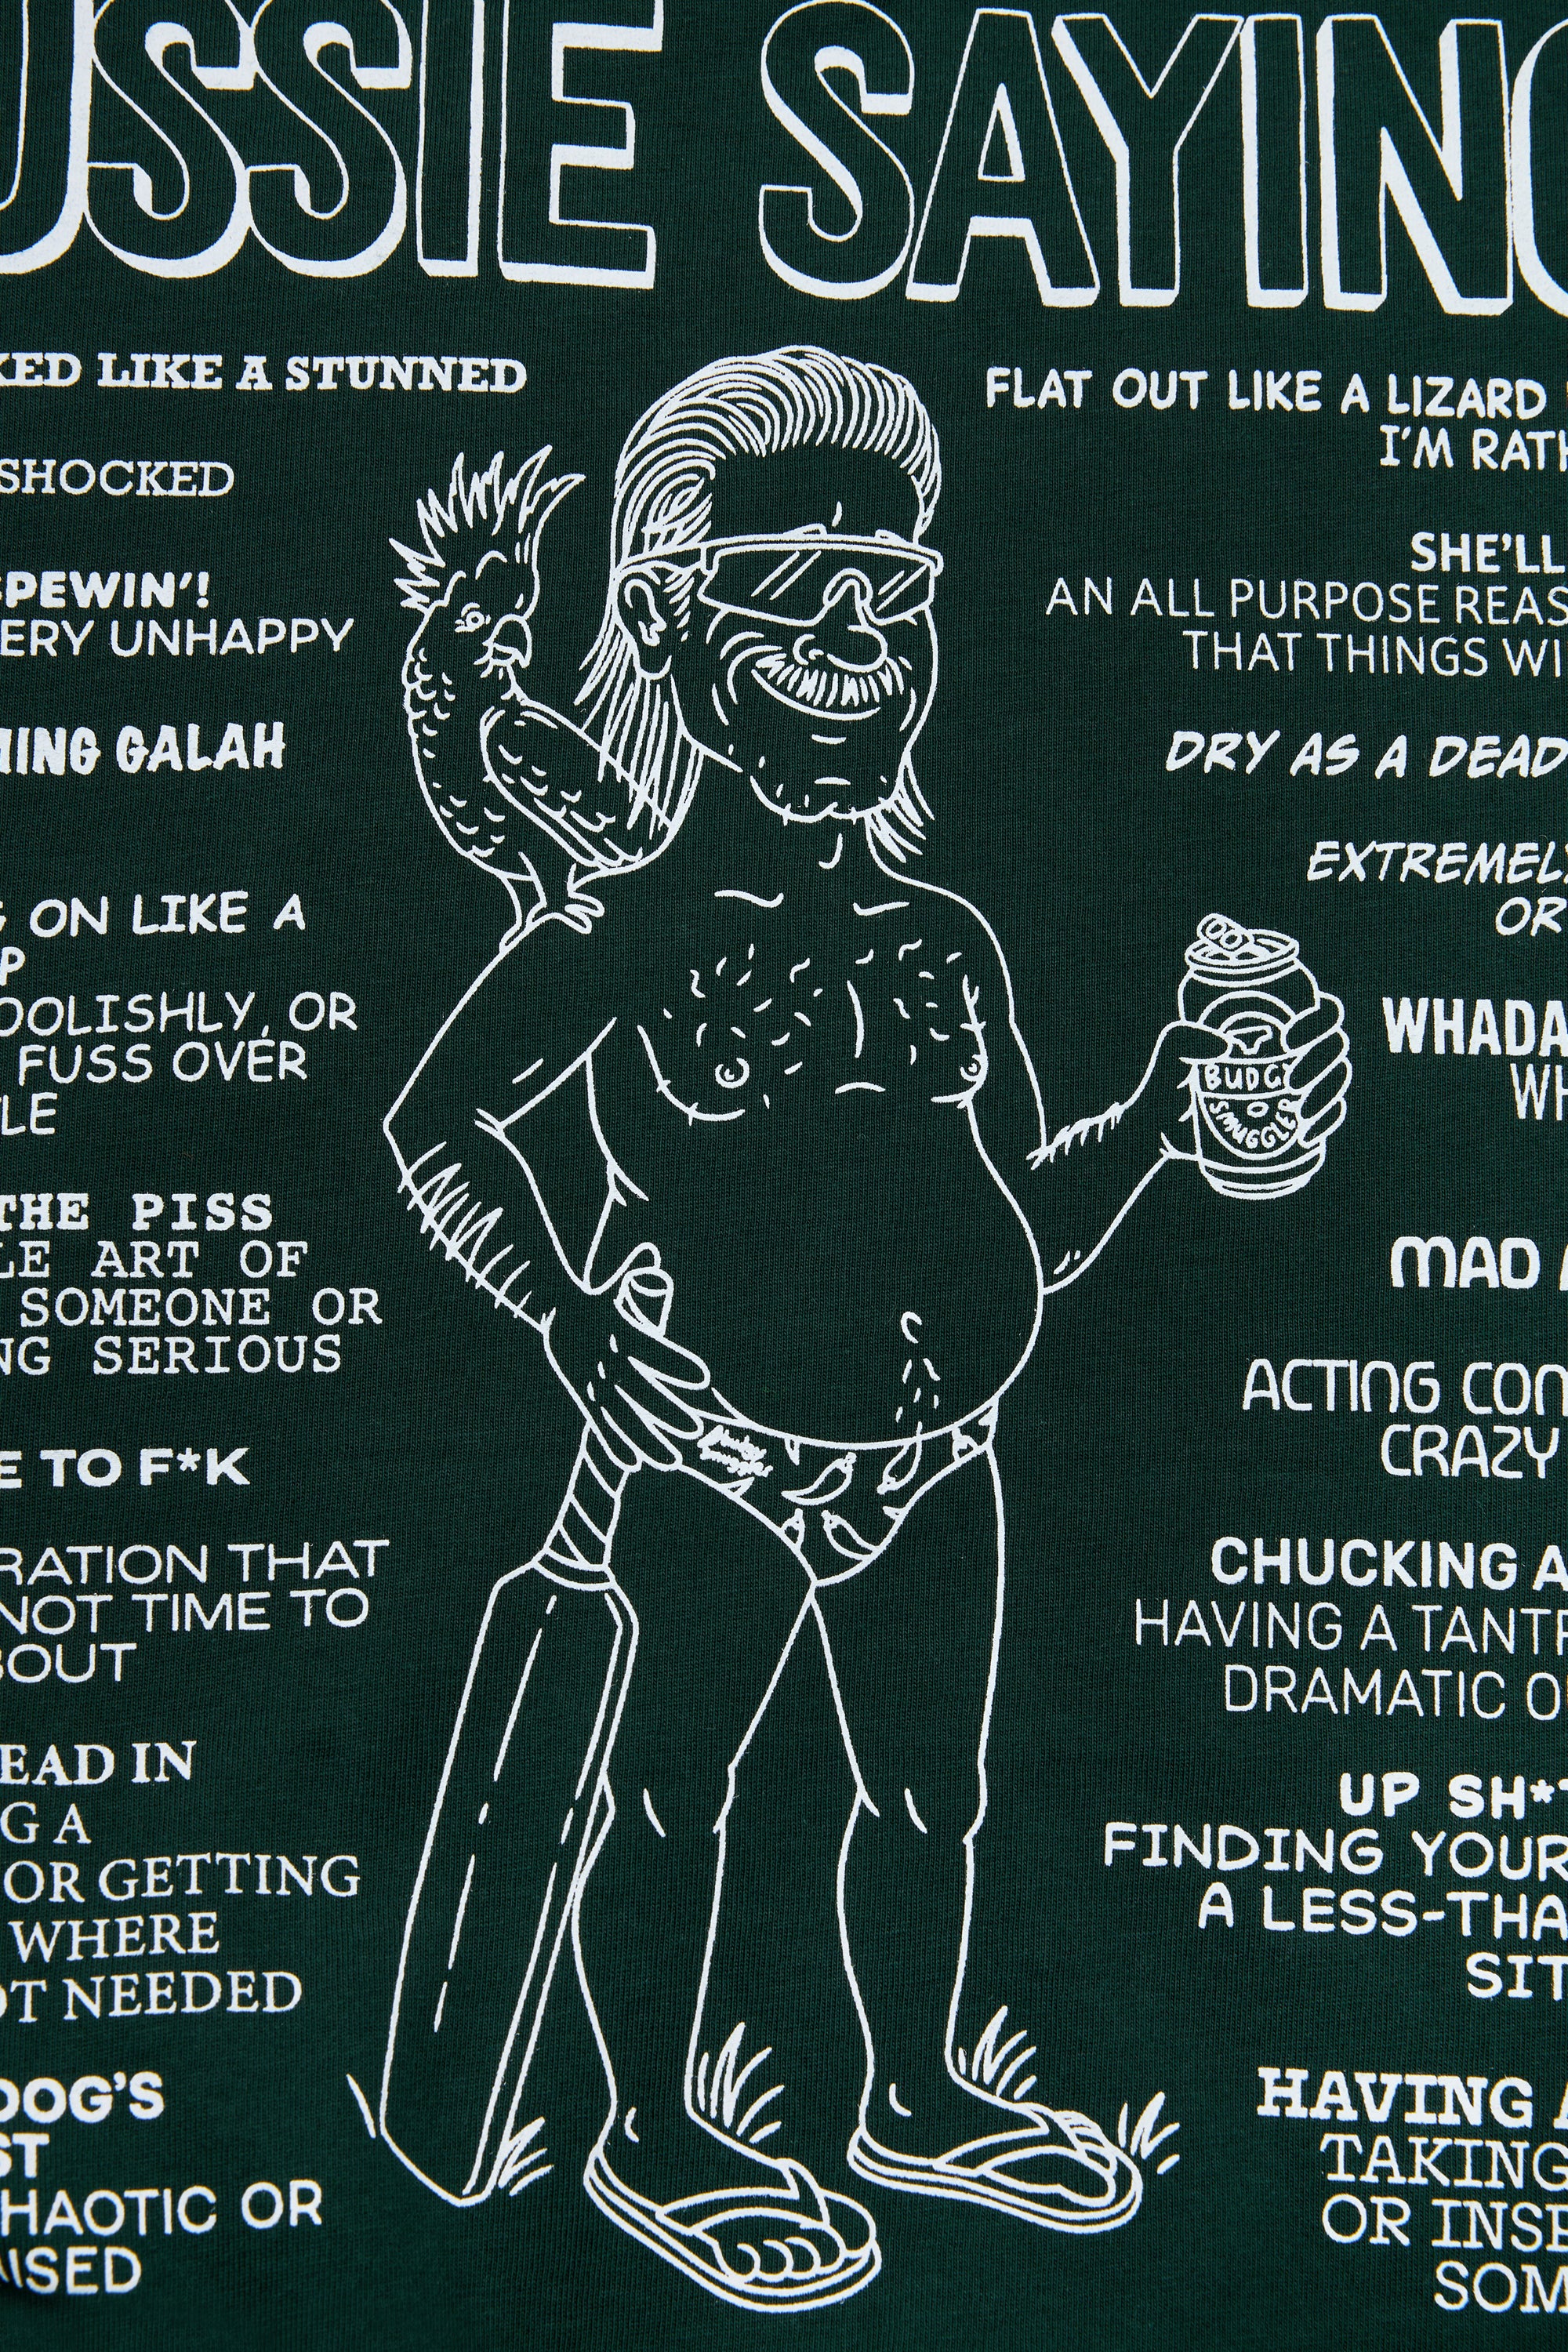 USSIE SAYING
KED LIKE A STUNNED
SHOCKED
SPEWIN'!
ERY UNHAPPY
MING GALAH
G ON LIKE A
P
OOLISHLY, OR
FUSS OVER
LE
THE PISS
LE ART OF
SOMEONE OR
NG SERIOUS
E TO F*K
RATION THAT
NOT TIME TO
BOUT
EAD IN
G A
OR GETTING
WHERE
OT NEEDED
DOG'S
ST
HAOTIC OR
NISED
BUDGY
SMUGGLER
budgy
smuggler
FLAT OUT LIKE A LIZARD
I'M RATH
SHE'LL
AN ALL PURPOSE REAS
THAT THINGS WI
DRY AS A DEAD
EXTREMELY
OR
WHADA
WH
MAD
ACTING CON
CRAZY
CHUCKING A
HAVING A TANTR
DRAMATIC O
UP SH*T
FINDING YOUR
A LESS-THA
SIT
HAVING A
TAKING
OR INSE
SOM